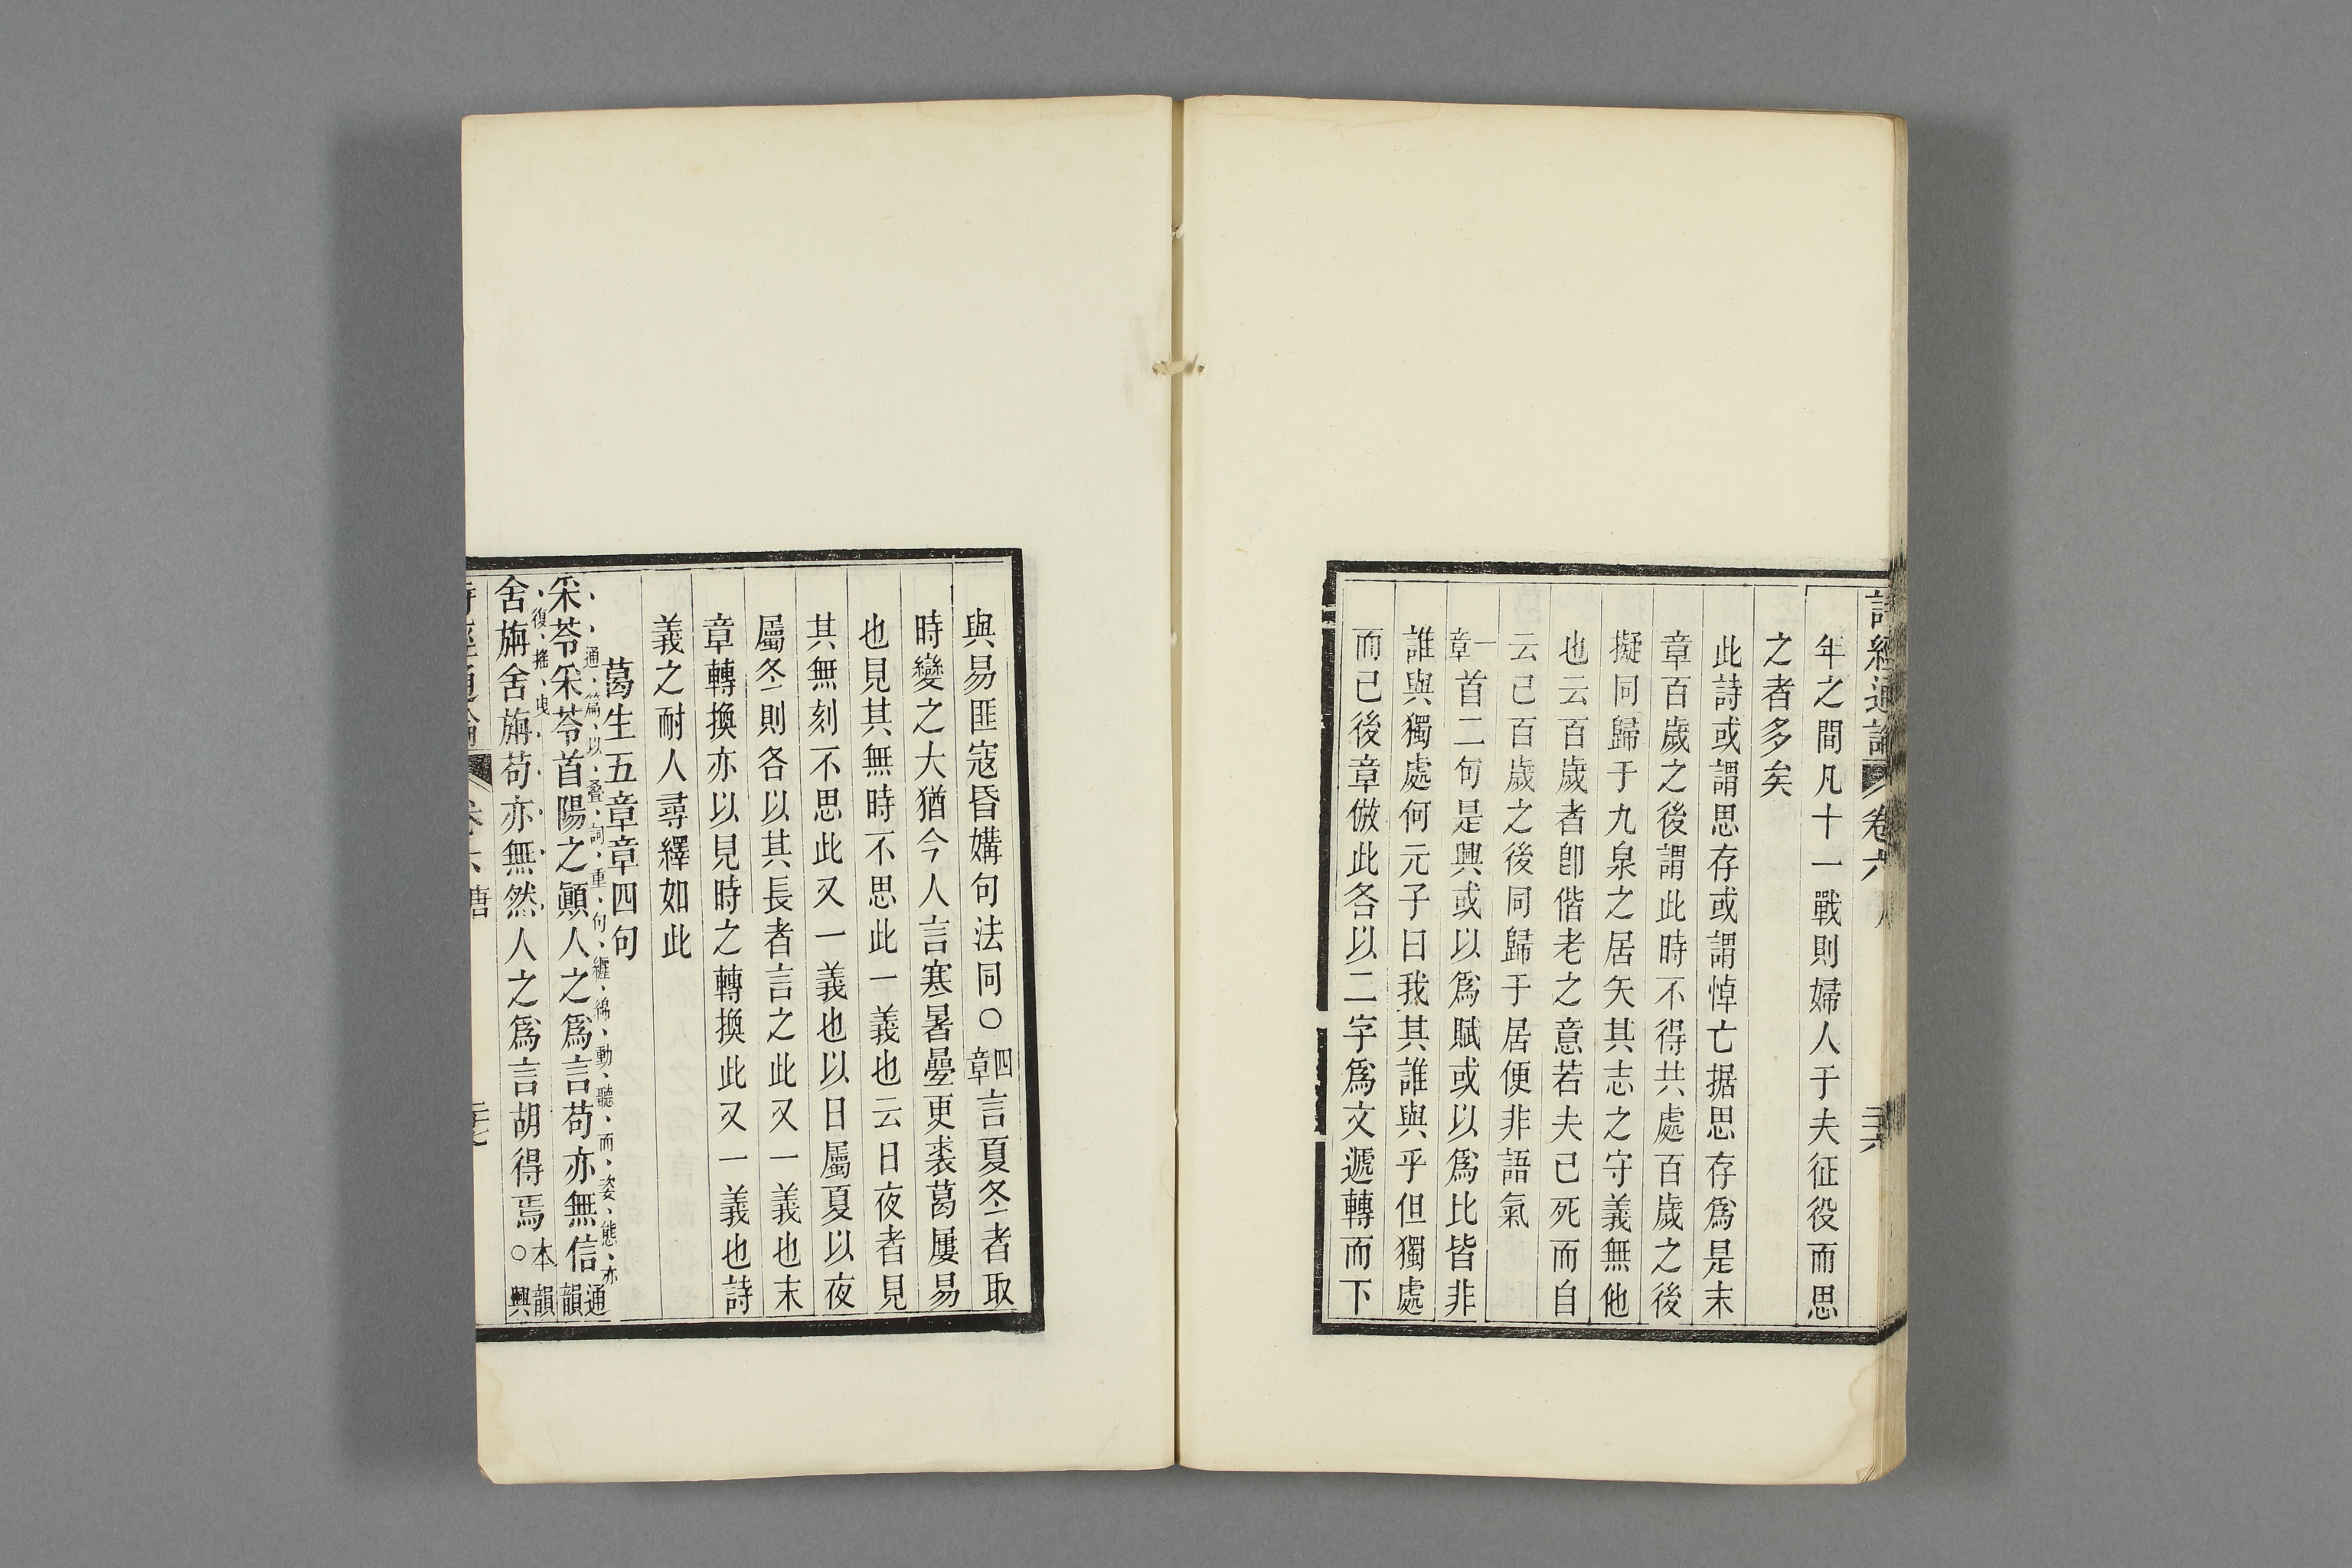 詩經通論 卷六 二十六
年之間凡十一戰則婦人于夫征役而思
之者多矣
此詩或謂思存或謂悼亡据思存爲是末
章百歲之後謂此時不得共處百歲之後
擬同歸于九泉之居矢其志之守義無他
也云百歲者卽偕老之意若夫已死而自
云已百歲之後同歸于居便非語氣
一章首二句是興或以爲賦或以爲比皆非
誰與獨處何元子曰我其誰與乎但獨處
而已後章倣此各以二字爲文遞轉而下
與易匪寇昏媾句法同○四章言夏冬者取
時變之大猶今人言寒暑㬪更裘葛屢易
也見其無時不思此一義也云日夜者見
其無刻不思此又一義也以日屬夏以夜
屬冬則各以其長者言之此又一義也末
章轉換亦以見時之轉換此又一義也詩
義之耐人尋繹如此
葛生五章章四句
通篇以叠詞重句纏綿動聽而姿態亦
采苓采苓首陽之顚人之爲言苟亦無信通韻
復搖曳
舍旃舍旃苟亦無然人之爲言胡得焉本韻○興
詩經通論 卷六 唐 二十七